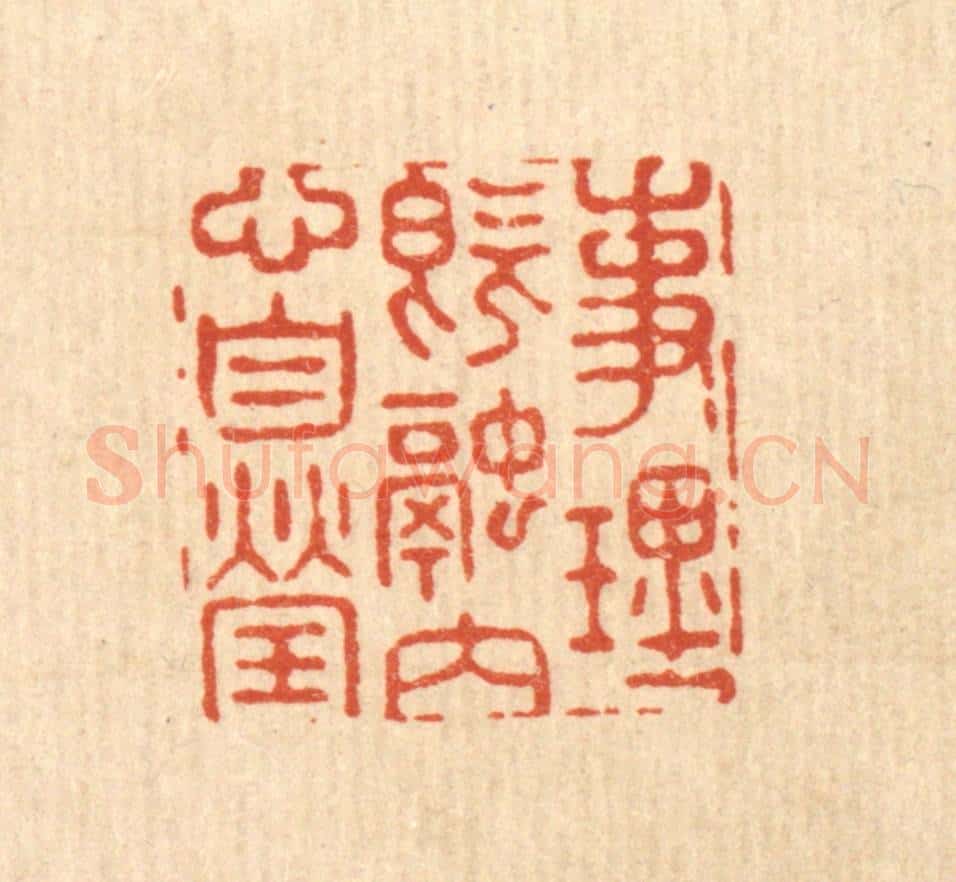 事理
既融内
心自瑩
Shufawang.CN